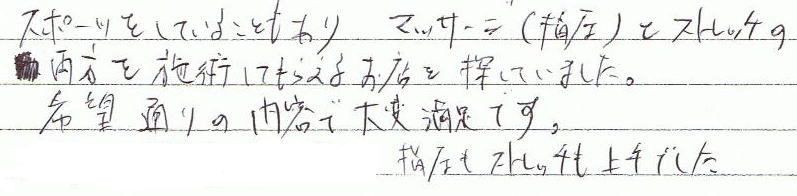 スポーツをしていることもあり マッサージ(指圧)とストレッチの
両方を施術してもらえるお店を探していました。
希望通りの内容で大変満足です。
指圧もストレッチも上手でした